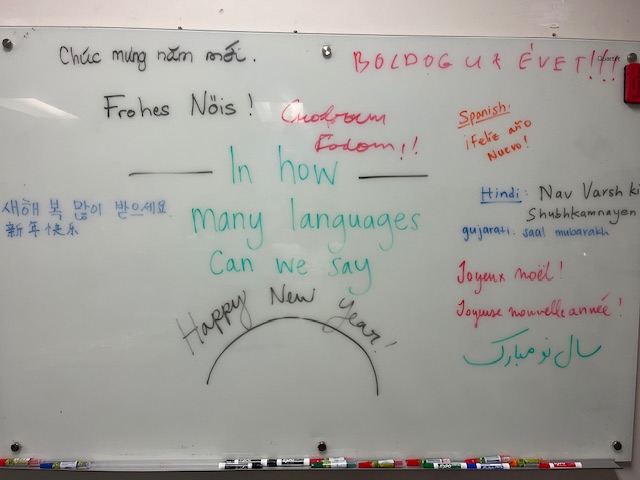 Chúc mừng năm mới.
BOLDOG ÚJ ÉVET!!!
Frohes Nöis!
Spanish:
¡Feliz año
Nuevo!
In how
many languages
can we say
Happy New Year!
새해 복 많이 받으세요
新年快乐
Hindi: Nav Varsh ki
Shubhkamnayen
gujarati: saal mubarakh
Joyeux noël!
Joyeuse nouvelle année!
سال نو مبارک